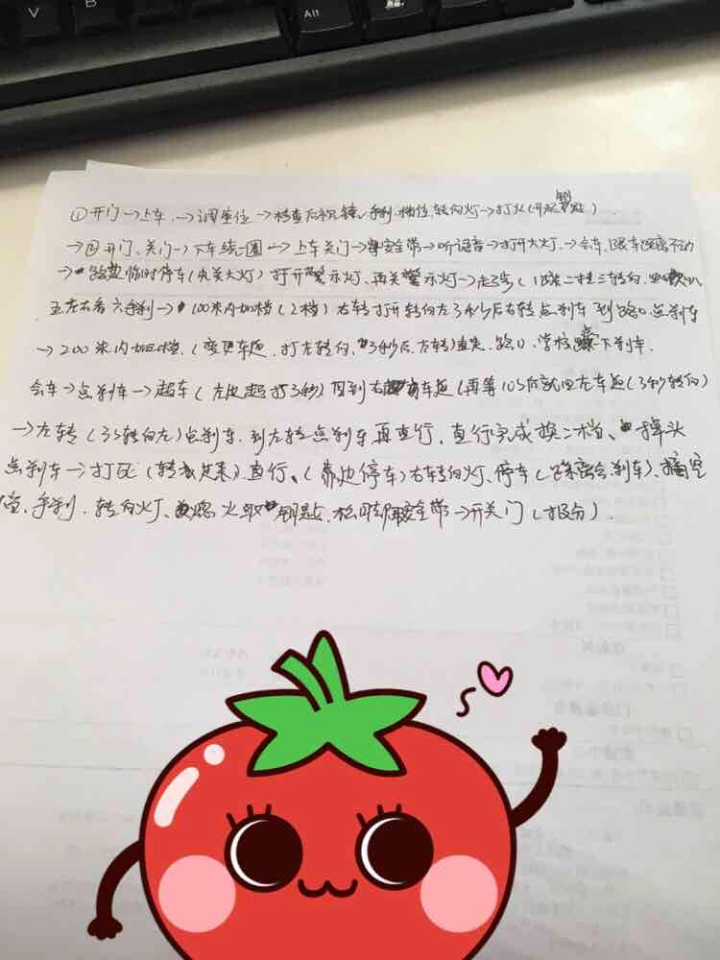 V B Alt
①开门→上车→调座位→检查后视镜、手刹、档位、转向灯→打火(开钥匙)
→②开门、关门→下车绕一圈→上车关门→安全带→听语音→打开大灯→会车、跟车距离不动
→路边临时停车(先关大灯)打开警示灯、再关警示灯→起步(1踩二挂三转向、四
五左右看六手刹→100米内加档(2档)右转打开转向左3秒后右转点刹车到路口点刹车
→200米内加档、(变更车道、打左转向、3秒后、左转)直走、路口、学校下刹车、
会车→点刹车→超车(左边超打3秒)回到右车道(再等10S后就回左车道(3秒转向)
→左转(3S转向左)点刹车、到左转点刹车再直行、直行完成换二档、掉头
点刹车→打死(转)直行、(靠边停车)右转向灯、停车(踩离合刹车)、摘空
档、手刹、转向灯、熄火取钥匙、松安全带→开关门(报分).